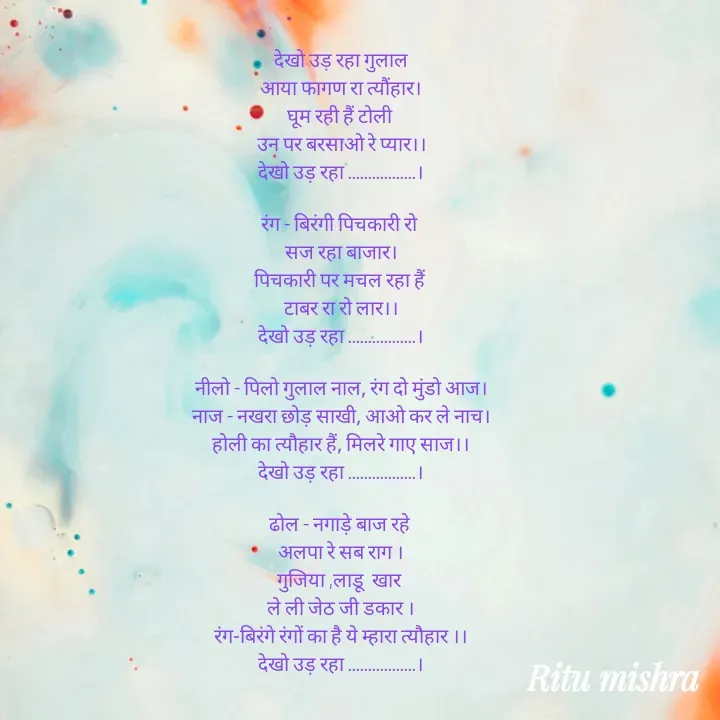 देखो उड़ रहा गुलाल
आया फागण रा त्यौंहार।
घूम रही हैं टोली
उन पर बरसाओ रे प्यार।।
देखो उड़ रहा .................।
रंग - बिरंगी पिचकारी रो
सज रहा बाजार।
पिचकारी पर मचल रहा हैं
टाबर रा रो लार।।
देखो उड़ रहा .................।
नीलो - पिलो गुलाल नाल, रंग दो मुंडो आज।
नाज - नखरा छोड़ साखी, आओ कर ले नाच।
होली का त्यौहार हैं, मिलरे गाए साज।।
देखो उड़ रहा .................।
ढोल - नगाड़े बाज रहे
अलपा रे सब राग ।
गुजिया ,लाडू खार
ले ली जेठ जी डकार ।
रंग-बिरंगे रंगों का है ये म्हारा त्यौहार ।।
देखो उड़ रहा .................।
Ritu mishra